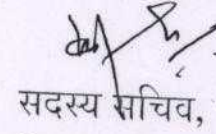 सदस्य सचिव,